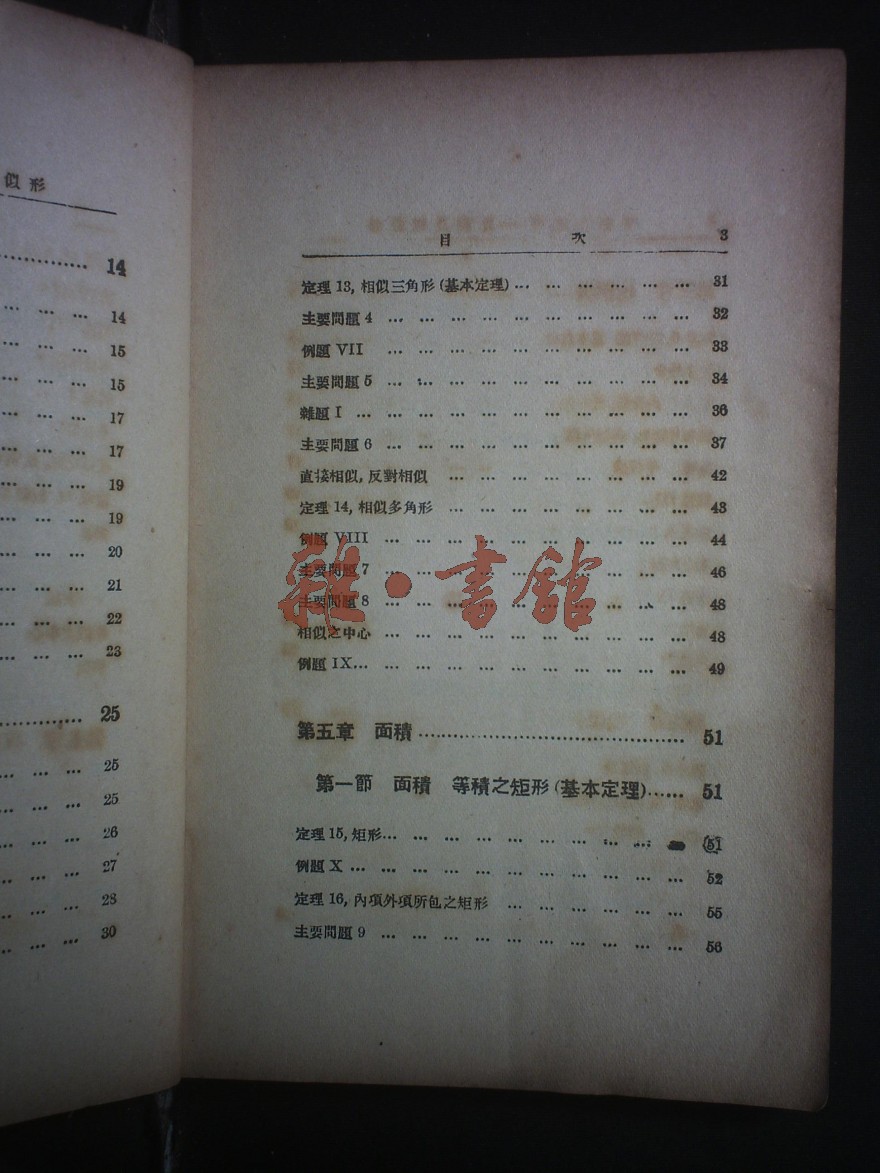 似形
14
14
15
15
17
17
19
19
20
21
22
23
25
25
25
26
27
28
30
目 次 3
定理 13, 相似三角形 (基本定理) … … … … … … 31
主要問題 4 … … … … … … … … … … 32
例題 VII … … … … … … … … … … 33
主要問題 5 … … … … … … … … … … 34
雜題 I … … … … … … … … … … … 36
主要問題 6 … … … … … … … … … … 37
直接相似, 反對相似 … … … … … … … … 42
定理 14, 相似多角形 … … … … … … … … 43
例題 VIII … … … … … … … … … … 44
主要問題 7 … … … … … … … … … … 46
主要問題 8 … … … … … … … … … … 48
相似之中心 … … … … … … … … … … 48
例題 IX … … … … … … … … … … … 49
雜·書館
第五章 面積 …………………………… 51
第一節 面積 等積之矩形 (基本定理) …… 51
定理 15, 矩形 … … … … … … … … … 51
例題 X … … … … … … … … … … … 52
定理 16, 內項外項所包之矩形 … … … … … … 55
主要問題 9 … … … … … … … … … … 56